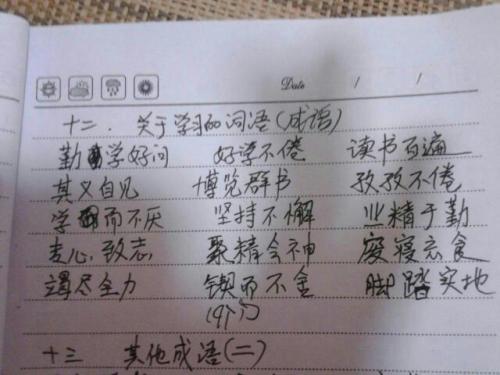 Date / /
十二．关于学习的词语(成语)
勤学好问 好学不倦 读书百遍
其义自见 博览群书 孜孜不倦
学而不厌 坚持不懈 业精于勤
专心致志 聚精会神 废寝忘食
竭尽全力 锲而不舍 脚踏实地
十三 其他成语(二)